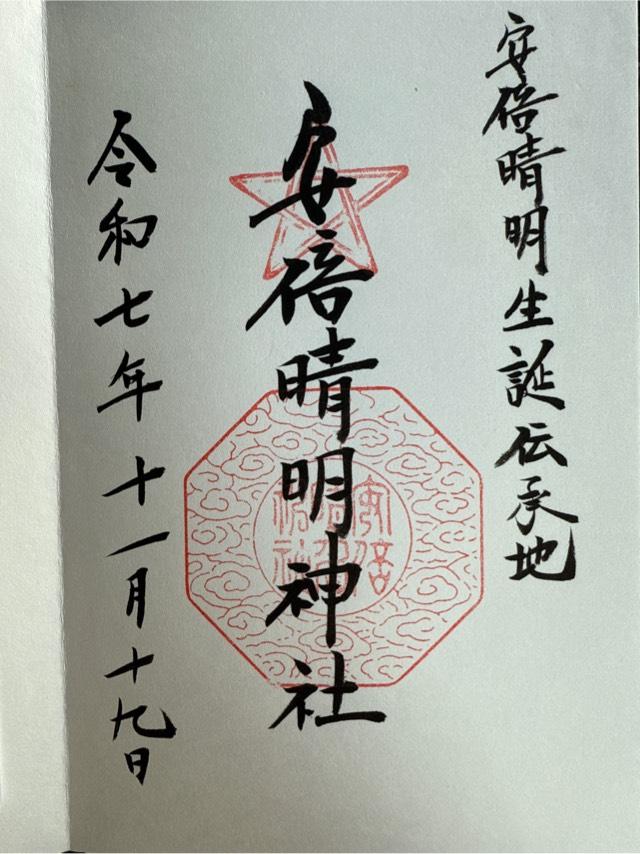 安倍晴明生誕伝承地
安倍晴明神社
令和七年十一月十九日